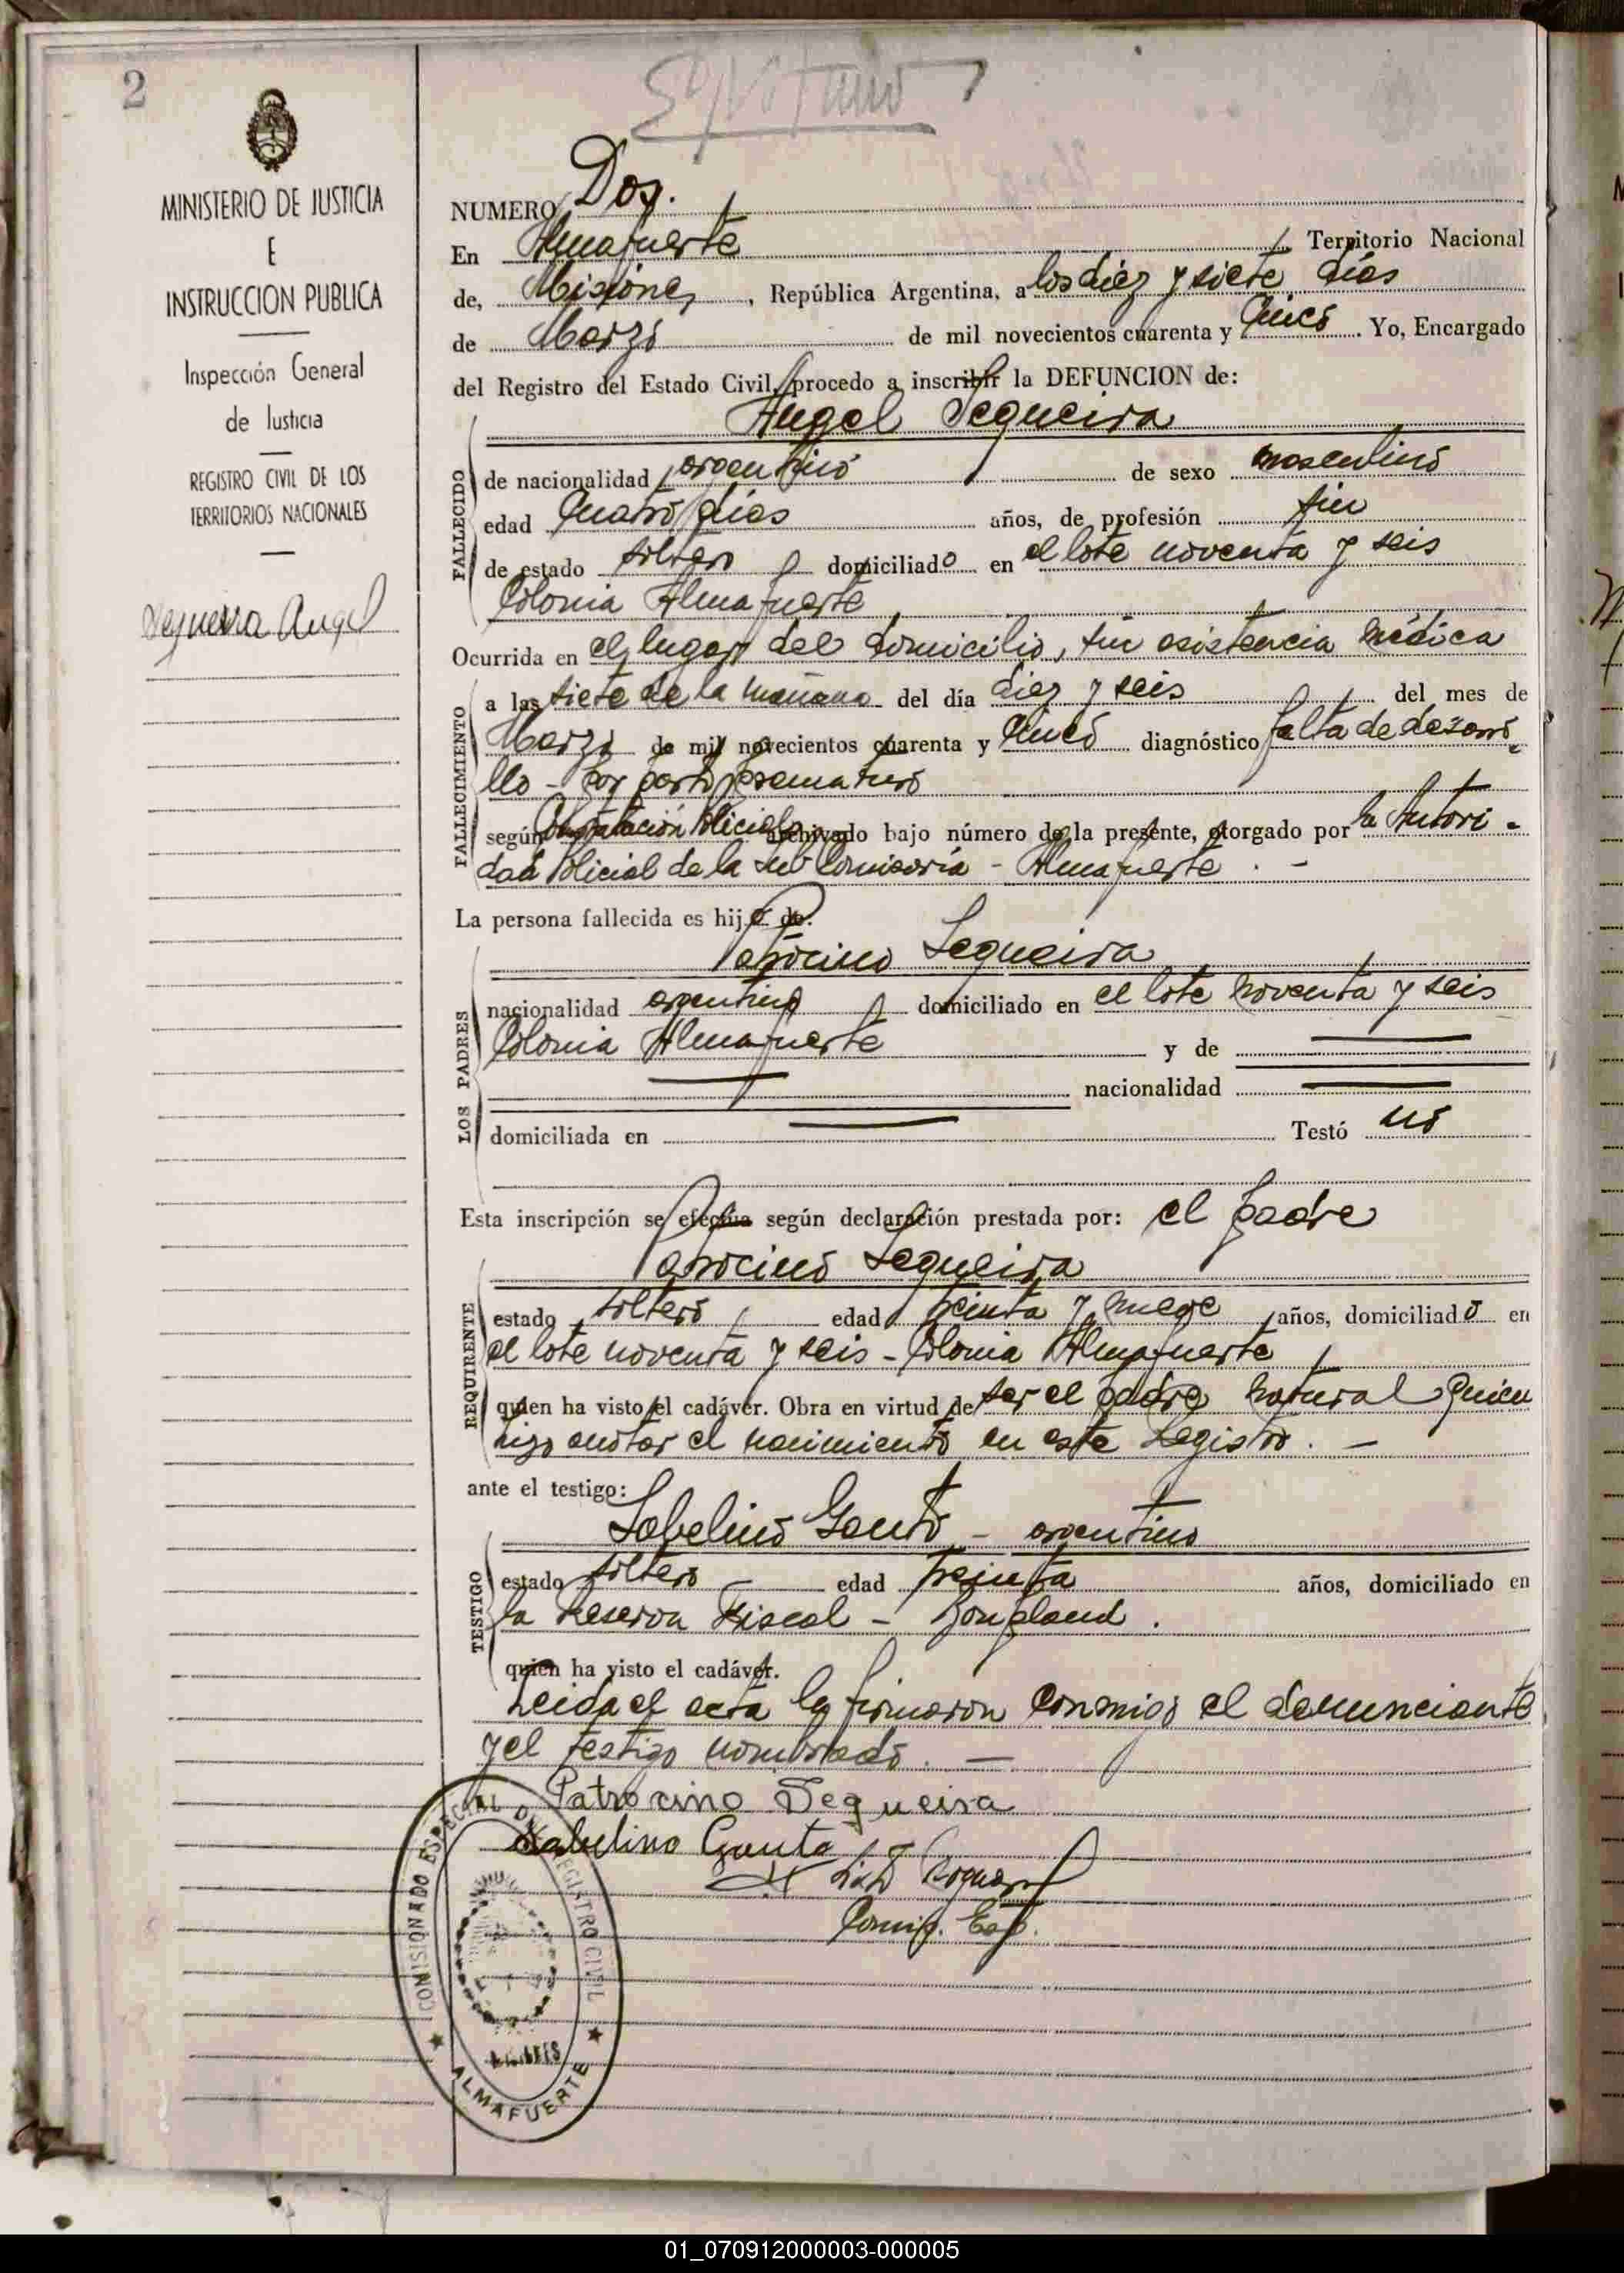 2
MINISTERIO DE JUSTICIA
E
INSTRUCCION PUBLICA
Inspección General
de Justicia
REGISTRO CIVIL DE LOS
TERRITORIOS NACIONALES
Sequeira Angel
NUMERO Dos.
En Almafuerte Territorio Nacional
de, Misiones, República Argentina, a los diez y siete días
de Marzo de mil novecientos cuarenta y Cinco. Yo, Encargado
del Registro del Estado Civil, procedo a inscribir la DEFUNCION de:
Angel Sequeira
FALLECIDO
de nacionalidad argentino de sexo masculino
edad Cuatro días años, de profesión sin
de estado soltero domiciliado en el lote noventa y seis
Colonia Almafuerte
Ocurrida en el lugar del domicilio, sin asistencia médica
FALLECIMIENTO
a las siete de la mañana del día diez y seis del mes de
Marzo de mil novecientos cuarenta y Cinco diagnóstico falta de desarro-
llo - por parto prematuro
según Constatación Policial archivado bajo número de la presente, otorgado por la Autori-
dad Policial de la Sub Comisaría - Almafuerte. -
La persona fallecida es hijo de:
LOS PADRES
Patrocino Sequeira
nacionalidad argentino domiciliado en el lote noventa y seis
Colonia Almafuerte y de
nacionalidad
domiciliada en Testó no
Esta inscripción se efectúa según declaración prestada por: el padre
REQUIRENTE
Patrocino Sequeira
estado soltero edad treinta y nueve años, domiciliado en
el lote noventa y seis - Colonia Almafuerte
quien ha visto el cadáver. Obra en virtud de ser el padre natural quien
hizo anotar el nacimiento en este Registro. -
ante el testigo:
TESTIGO
Sabelino Gauto - argentino
estado soltero edad treinta años, domiciliado en
la Reserva Fiscal - Bonpland.
quien ha visto el cadáver.
Leida el acta la firmaron conmigo el denunciante
y el testigo nombrado. -
Patrocino Sequeira
Sabelino Gauto
Comis. Esp.
COMISIONADO ESPECIAL DEL REGISTRO CIVIL
ALMAFUERTE
01_070912000003-000005